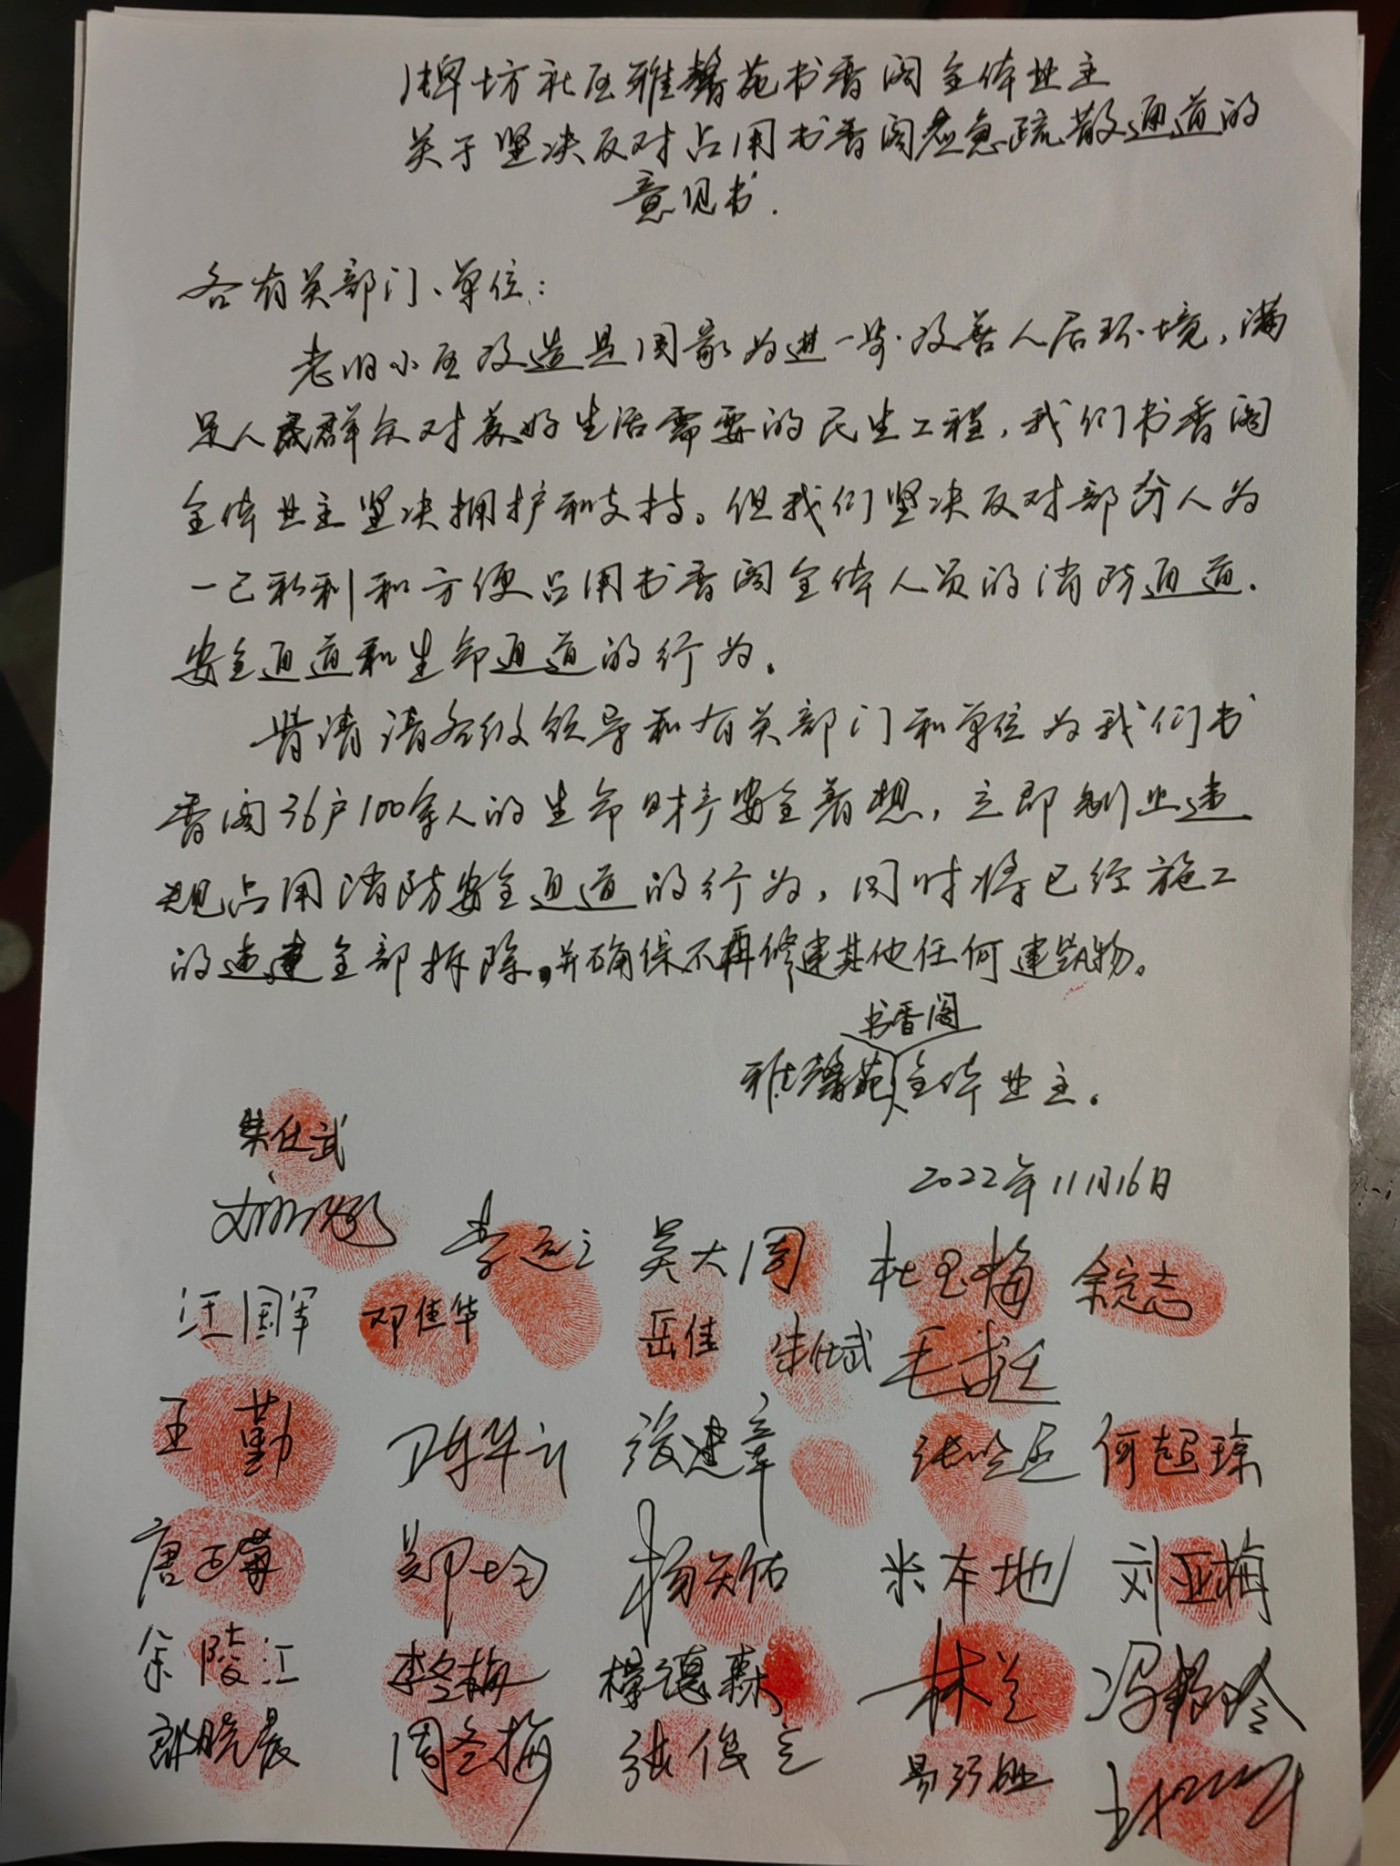 牌坊社区雅馨苑书香阁全体业主
关于坚决反对占用书香阁应急疏散通道的
意见书.
各有关部门、单位：
老旧小区改造是国家为进一步改善人居环境，满
足人民群众对美好生活需要的民生工程，我们书香阁
全体业主坚决拥护和支持。但我们坚决反对部分人为
一己私利和方便占用书香阁全体人员的消防通道.
安全通道和生命通道的行为。
恳请请各级领导和有关部门和单位为我们书
香阁36户100余人的生命财产安全着想，立即制止违
规占用消防安全通道的行为，同时将已经施工
的违建全部拆除，并确保不再修建其他任何建筑物。
书香阁
雅馨苑全体业主。
2022年11月16日
朱仕武
吴大周 杜玉梅 余定志
汪国军 邓佳华 岳佳 朱仕武
王勤 陈华云 张建章 何超琼
唐玉菊 郑均 杨天佑 米本地 刘亚梅
余陵江 李冬梅 杨德森 林兰
郭晓晨 周冬梅 张俊